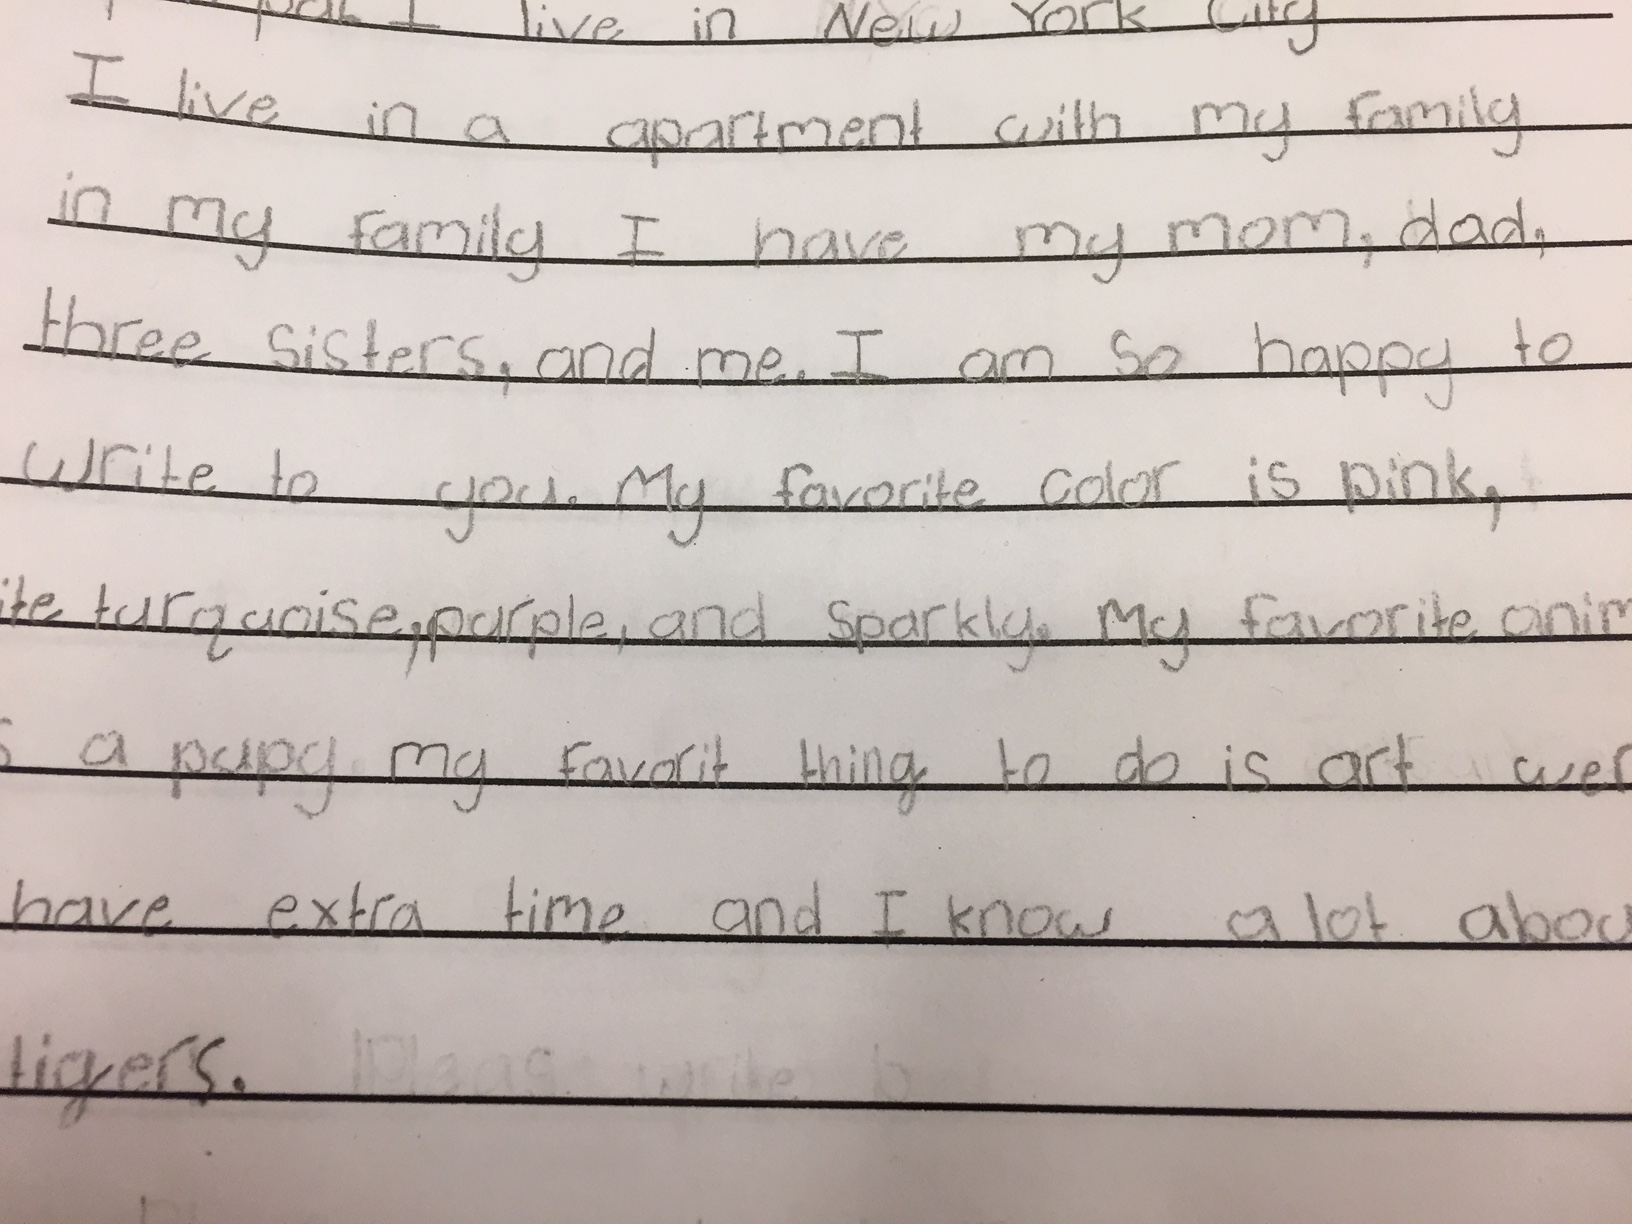 pal I live in New York City
I live in a apartment with my family
in my family I have my mom, dad,
three sisters, and me. I am so happy to
write to you. My favorite color is pink,
ite turquoise, purple, and sparkly. My favorite anim
s a pupy my favorit thing to do is art wer
have extra time and I know a lot abou
tigers. Pleas write b